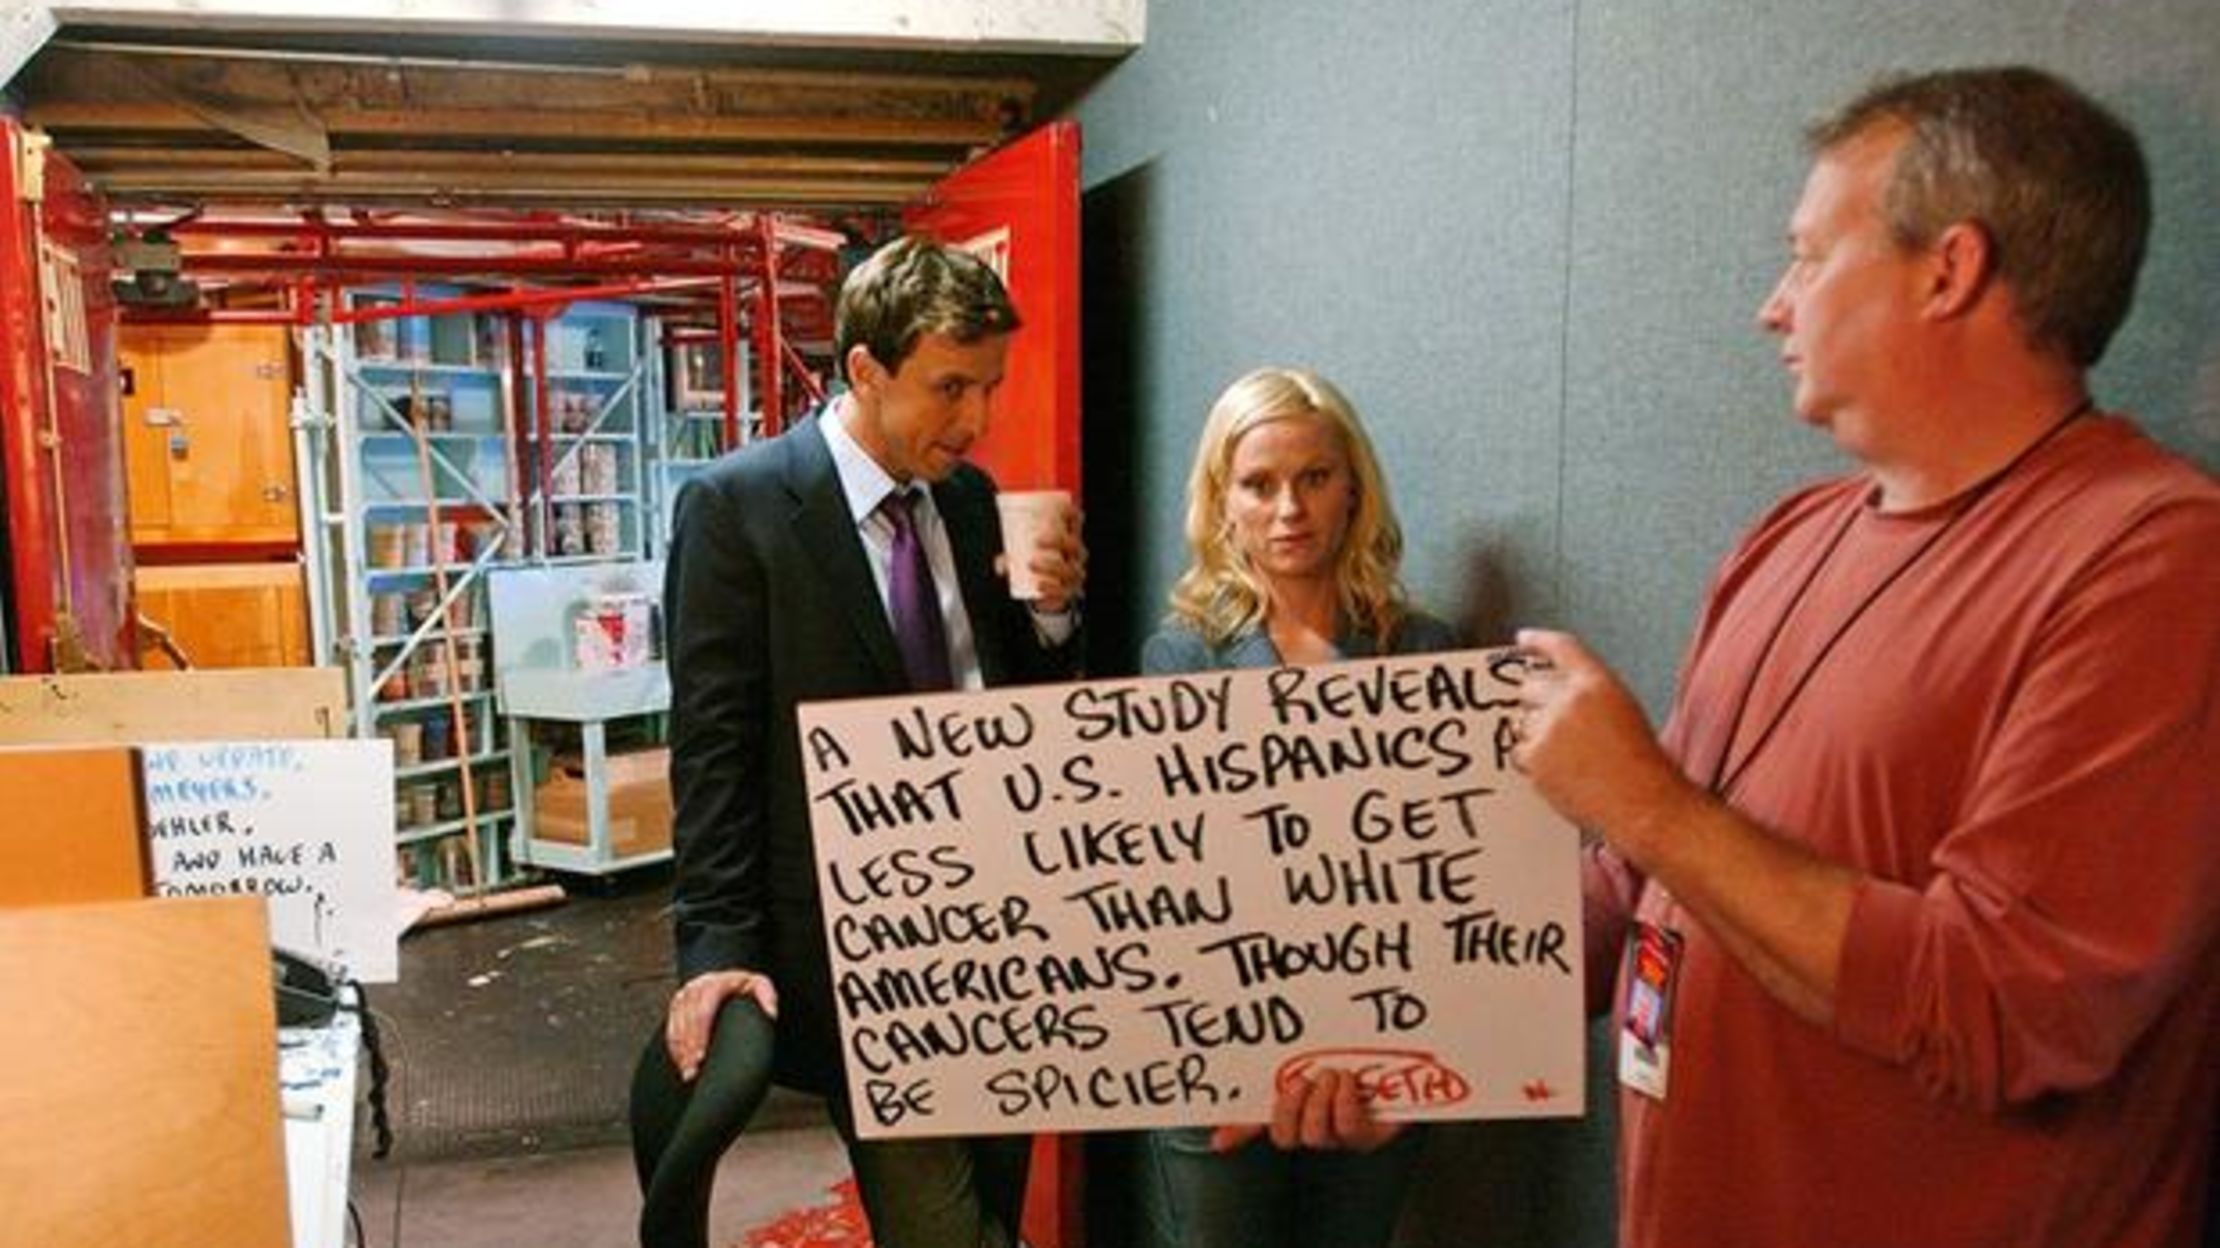 A NEW STUDY REVEALS
THAT U.S. HISPANICS
LESS LIKELY TO GET
CANCER THAN WHITE
AMERICANS. THOUGH THEIR
CANCERS TEND TO
BE SPICIER. SETH
UPDATE,
MEYERS.
AND HAVE A
TOMORROW.